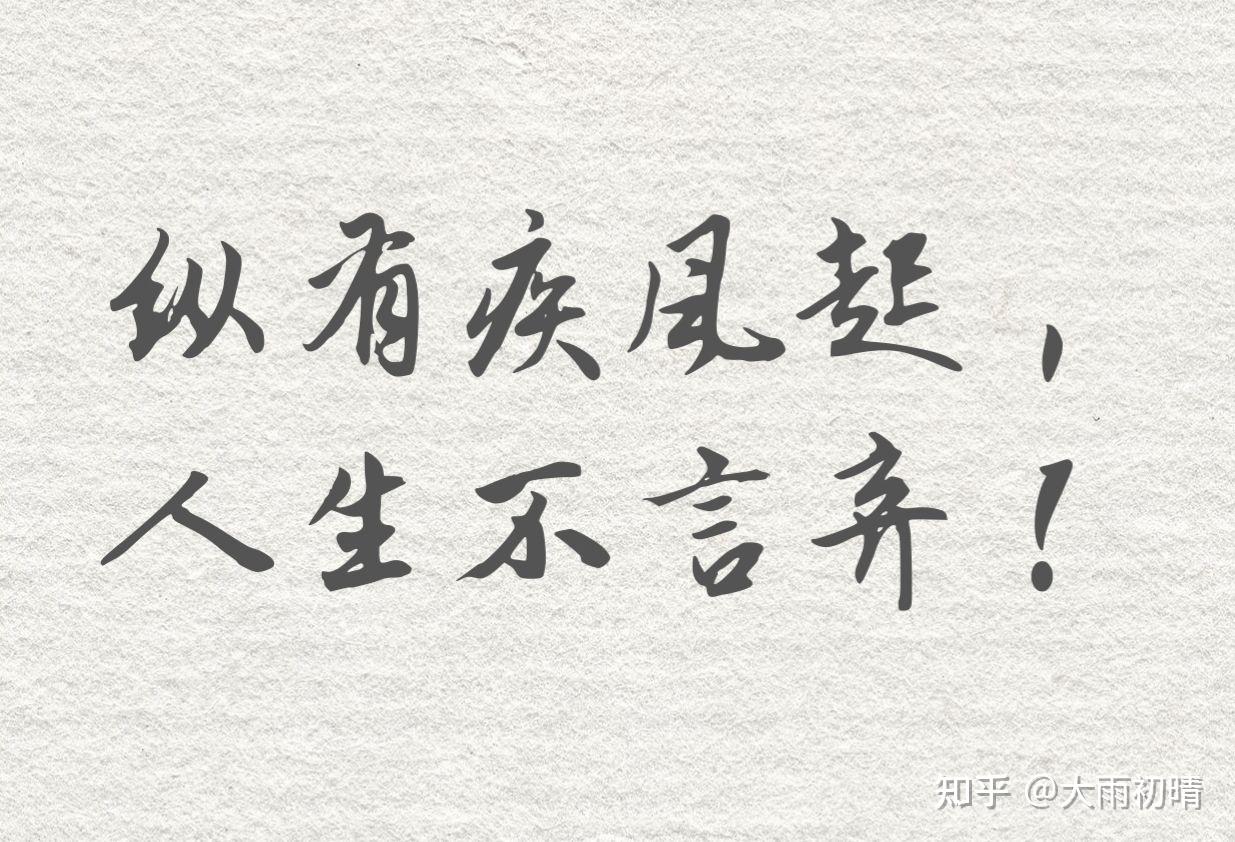 纵有疾风起，
人生不言弃！
知乎 @大雨初晴